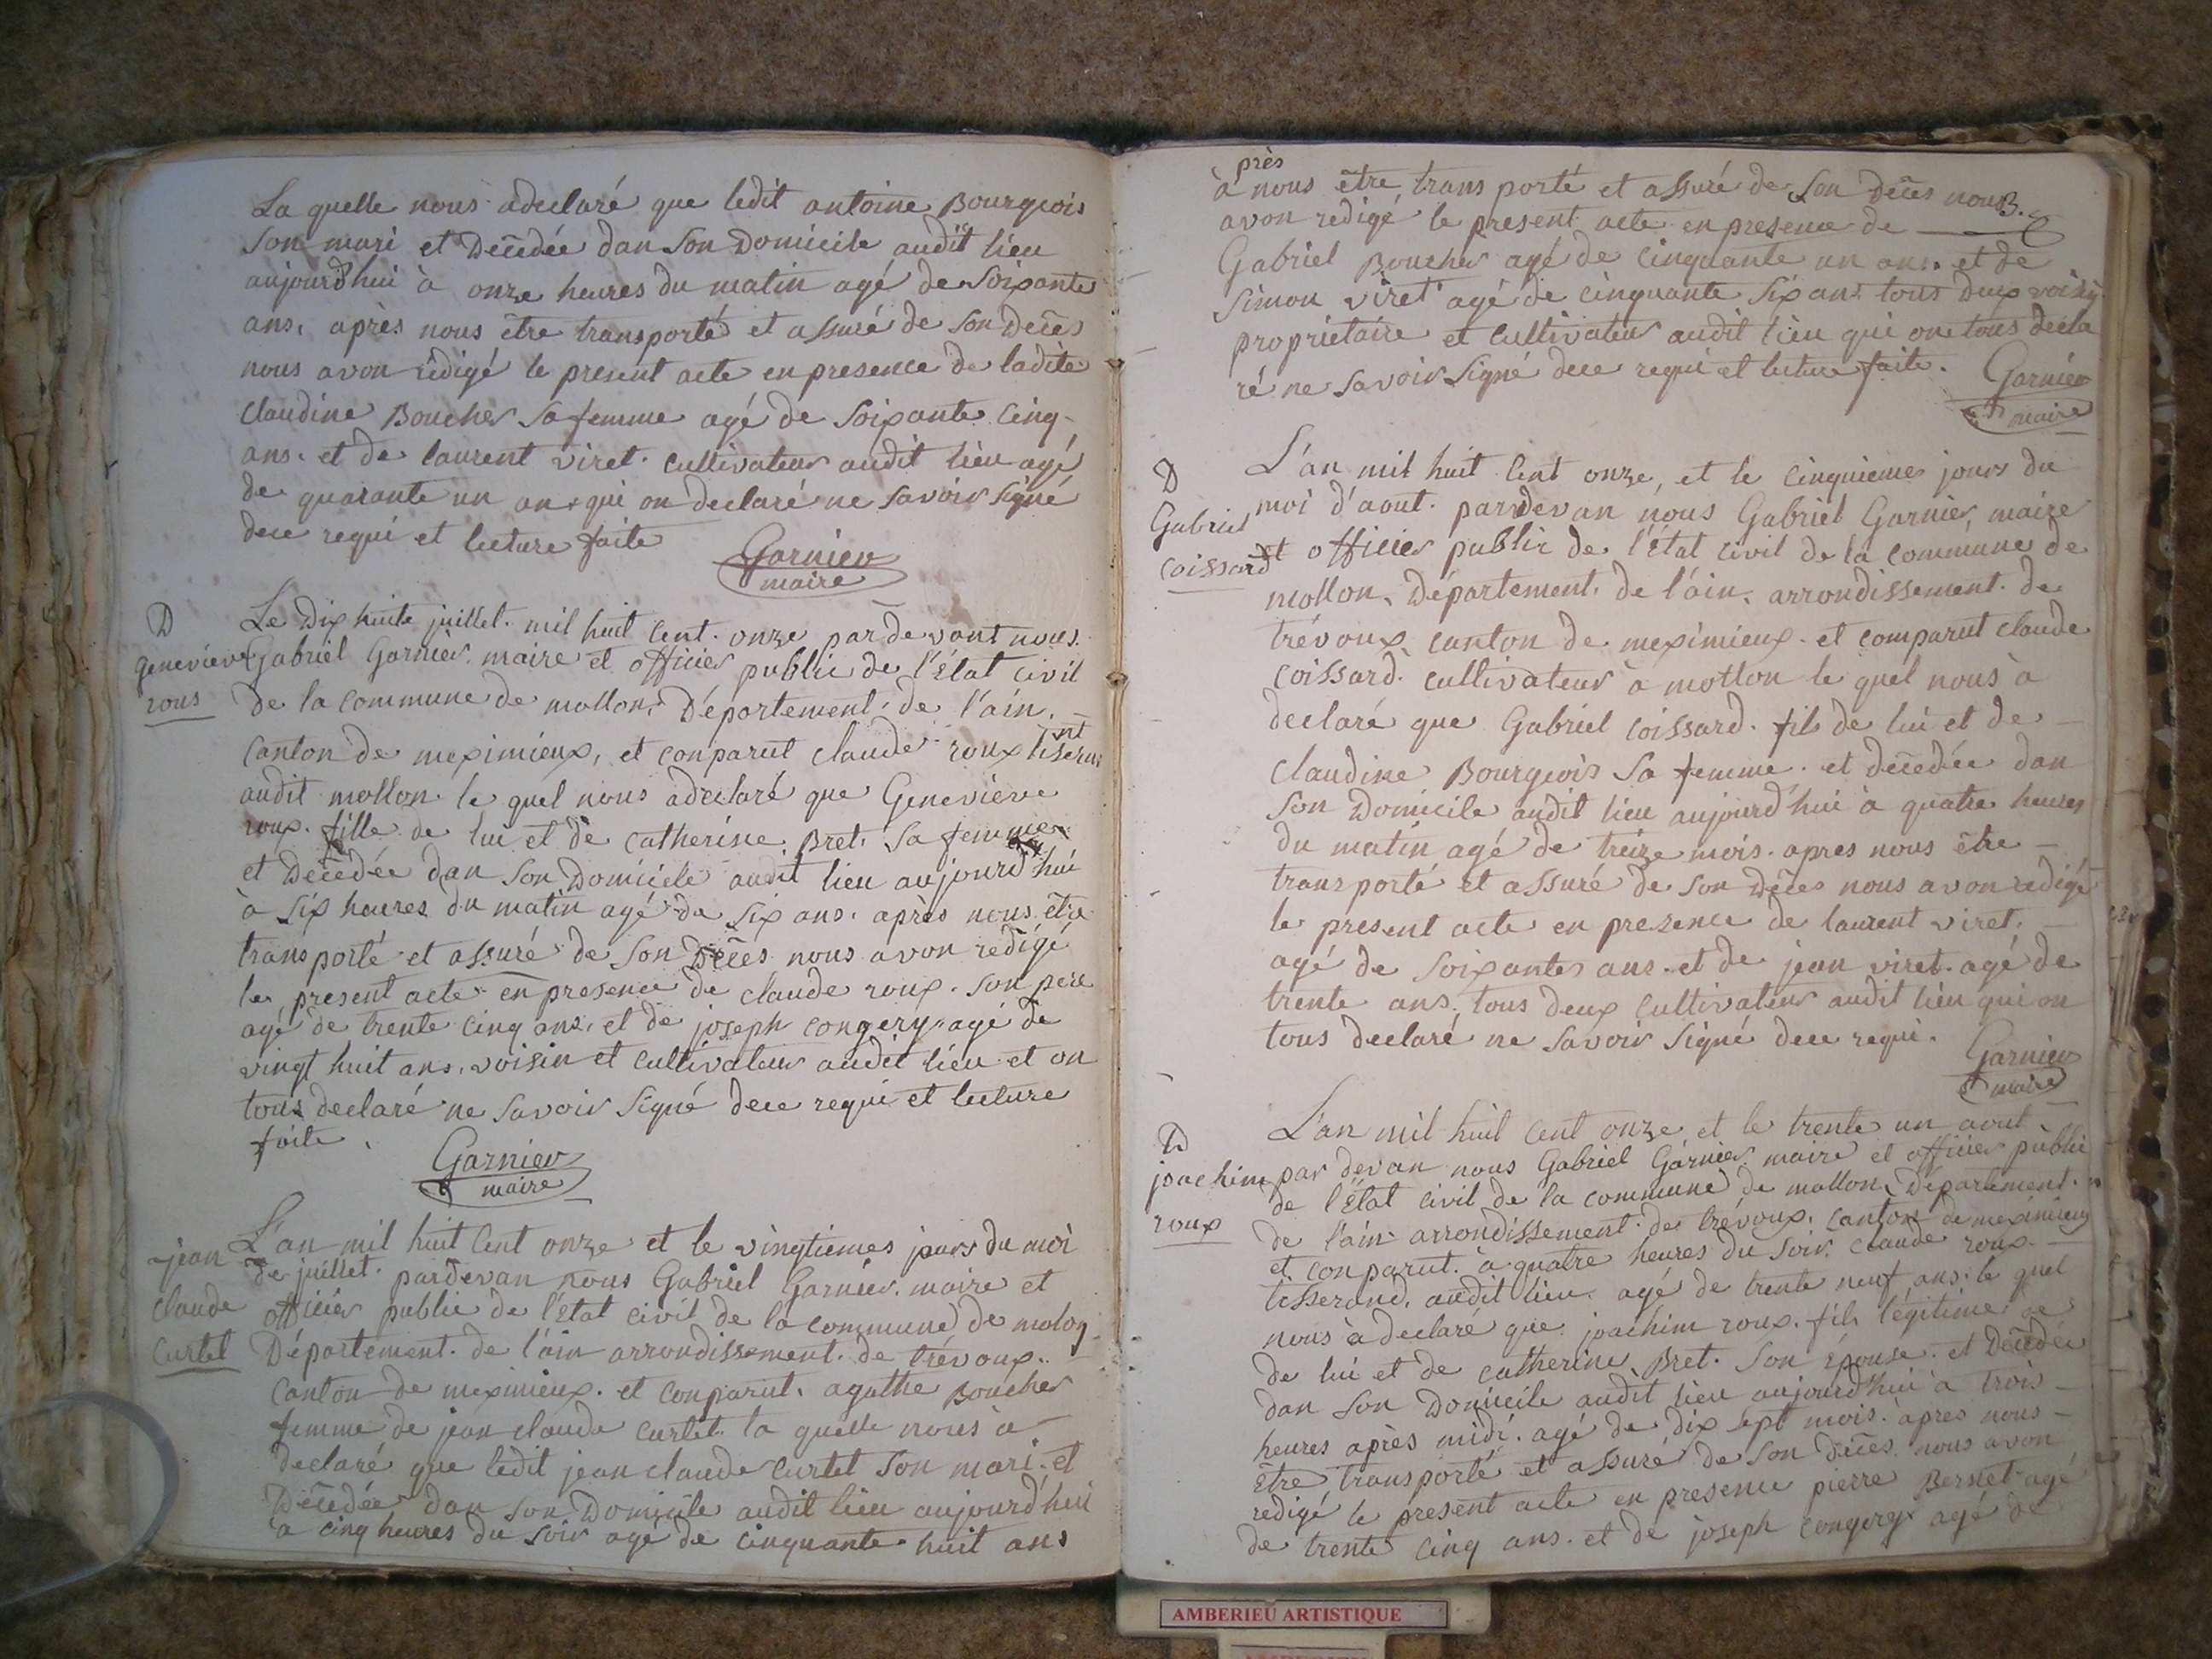 La quelle nous adeclaré que ledit antoine Bourgeois
Son mari et Décédée dan Son Domicile audit lieu
aujourd'hui à onze heures du matin agé de Soixante
ans. après nous être transporté et assuré de Son Decès
nous avon rédigé le present acte en presence de ladite
Claudine Boucher Sa femme agé de Soixante Cinq
ans. et de laurent viret. cultivateur audit lieu agé
de quarante un ans qui on declaré ne Savoir Signé
dece requi et lecture faite
Garnier
maire
D
genevieve
rous
Le Dix huite juillet. mil huit Cent. onze par devant nous.
Gabriel Garnier. maire et officier public de l'État Civil
De la Commune de mollon, Département. de l'ain.
Canton de meximieux, et conparut claude roux tiserant
audit mollon. le quel nous adeclaré que Geneviéve
roux. fille de lui et de Catherine Bret. Sa femme
et Décédée dan Son Domicile audit lieu aujourd'hui
à Six heures du matin agé de Six ans. après nous être
transporté et assuré de Son Decès nous avon redigé
le present acte en presence de claude roux. Son pere
agé de trente Cinq ans. et de joseph Congery agé de
vingt huit ans. voisin et Cultivateur audit lieu et on
tous declaré ne Savoir Signé dece requi et lecture
faite.
Garnier
maire
jean
Claude
Curtet
L'an mil huit Cent onze et le vingtiemes jours du moi
de juillet. pardevan nous Gabriel Garnier. maire et
officier public de l'Etat civil de la commune de molon
Département. de l'ain arrondissement. de trévoux.
Canton de meximieux. et Conparut. agathe Boucher
femme de jean claude Curtet. la quelle nous à
declaré que ledit jean claude Curtet Son mari. et
Décédée dan Son Domicile audit lieu aujourd'hui
a cinq heures du Soir agé de Cinquante huit ans
près
à nous être transporté et assuré de Son Decès nous
3.
avon redigé le present acte en presence de
Gabriel Boucher agé de Cinquante un ans. et de
Simon viret agé de cinquante Six ans tous deux voisin
proprietaire et Cultivateur audit lieu qui on tous decla
ré ne Savoir Signé dece requi et lecture faite.
Garnier
maire
D
Gabriel
Coissard
L'an mil huit Cent onze, et le Cinquiemes jours du
moi d'aout. pardevan nous Gabriel Garnier, maire
et officier public de l'État civil de la commune de
mollon, Département. de l'ain. arrondissement. de
trévoux canton de meximieux. et comparut claude
Coissard. cultivateur à mollon le quel nous à
declaré que Gabriel Coissard. fils de lui et de
Claudine Bourgeois Sa femme. et décédée dan
Son Domicile audit lieu aujourd'hui à quatre heures
du matin agé de treize mois. apres nous être
transporté et assuré de Son Decès nous avon redigé
le present acte en presence de laurent viret.
agé de Soixantes ans. et de jean viret. agé de
trente ans. tous deux Cultivateur audit lieu qui on
tous declaré ne Savoir Signé dece requi.
Garnier
maire
D
joachim
roux
L'an mil huit Cent onze et le trente un aout
par devan nous Gabriel Garnier maire et officier public
de l'État civil de la commune de mollon, Département.
de l'ain arrondissement. de trévoux. Canton de meximieux
et conparut. à quatre heures du Soir. Claude roux
tisserand. audit lieu. agé de trente neuf ans. le quel
nous à declaré que joachim roux. fils légitime de
de lui et de Catherine Bret. Son épouse. et Décédée
dan Son Domicile audit lieu aujourd'hui à trois
heures après midi. agé de dix Sept mois. apres nous
Être transporté et assuré de Son Decès nous avon
redigé le present acte en presence pierre Bernet agé
de trente Cinq ans. et de joseph Congery agé de
AMBERIEU ARTISTIQUE